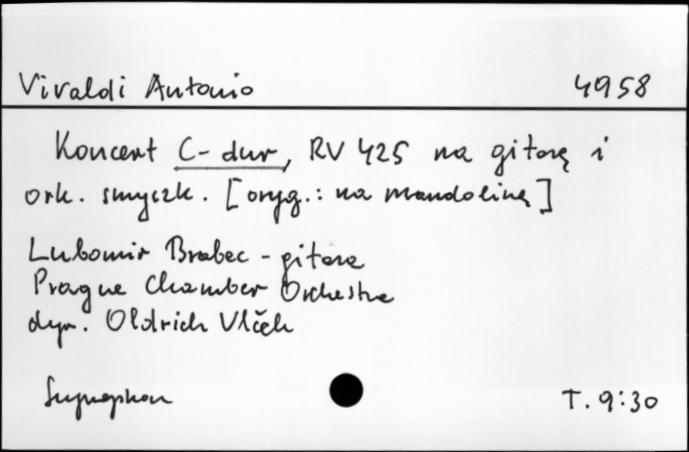 Vivaldi Antonio 4958
Koncert C-dur, RV 425 na gitarę i
ork. smyczk. [oryg.: na mandolinę]
Lubomir Brabec - gitara
Prague Chamber Orchestra
dyr. Oldrich Vlček
Supraphon T. 9:30